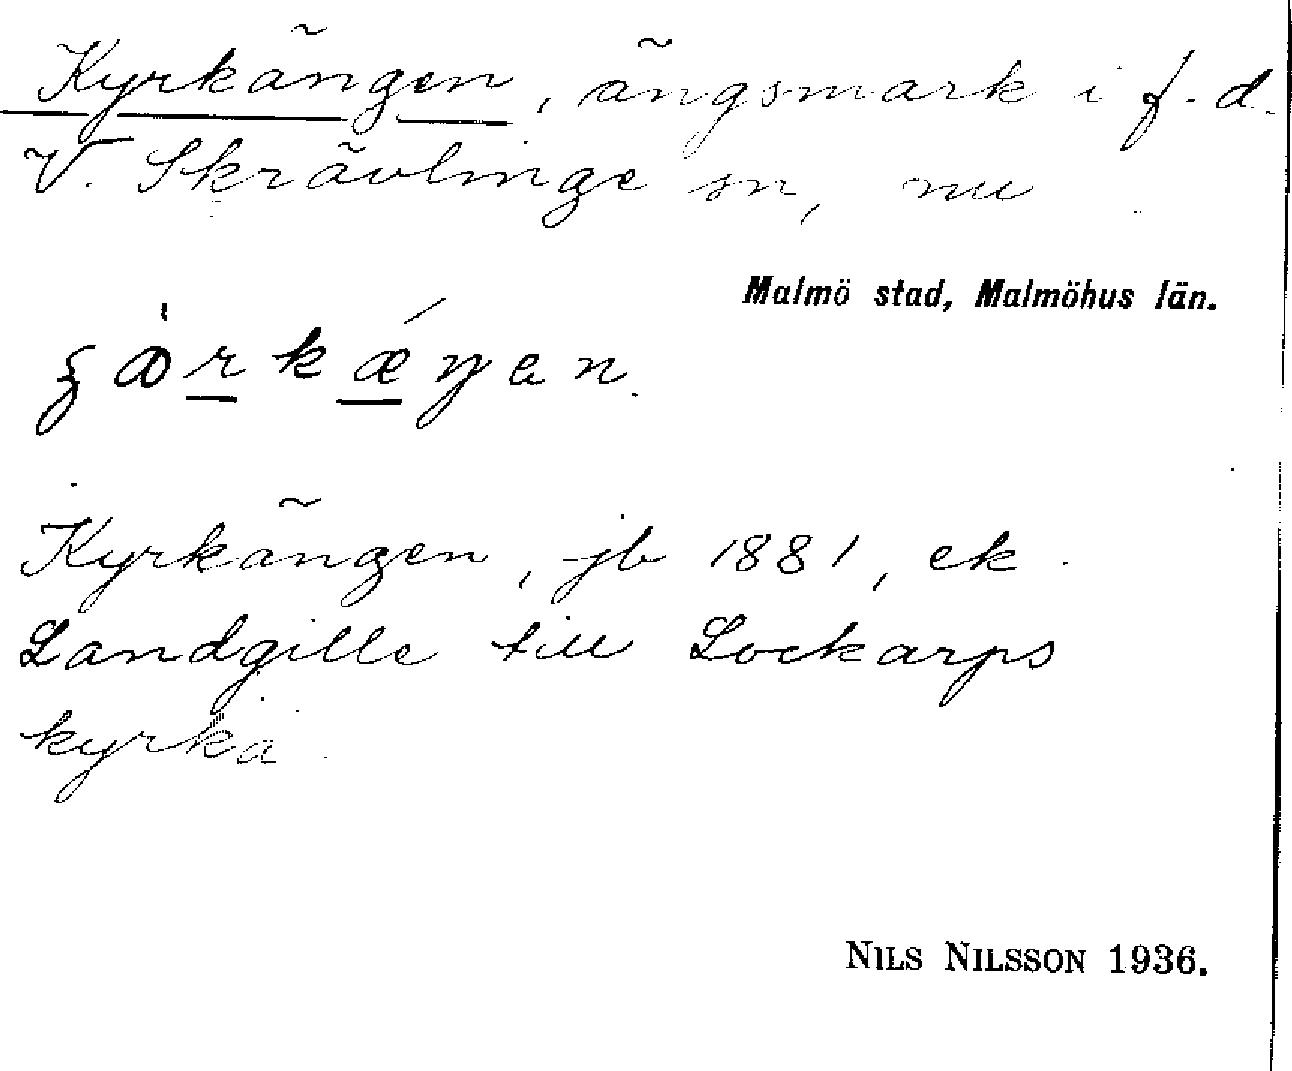 Kyrkängen, ängsmark i f.d.
V. Skrävlinge sn, nu
Malmö stad, Malmöhus län.
Kyrkängen, jb 1881, ek
Landgille till Lockarps
kyrka
NILS NILSSON 1936.